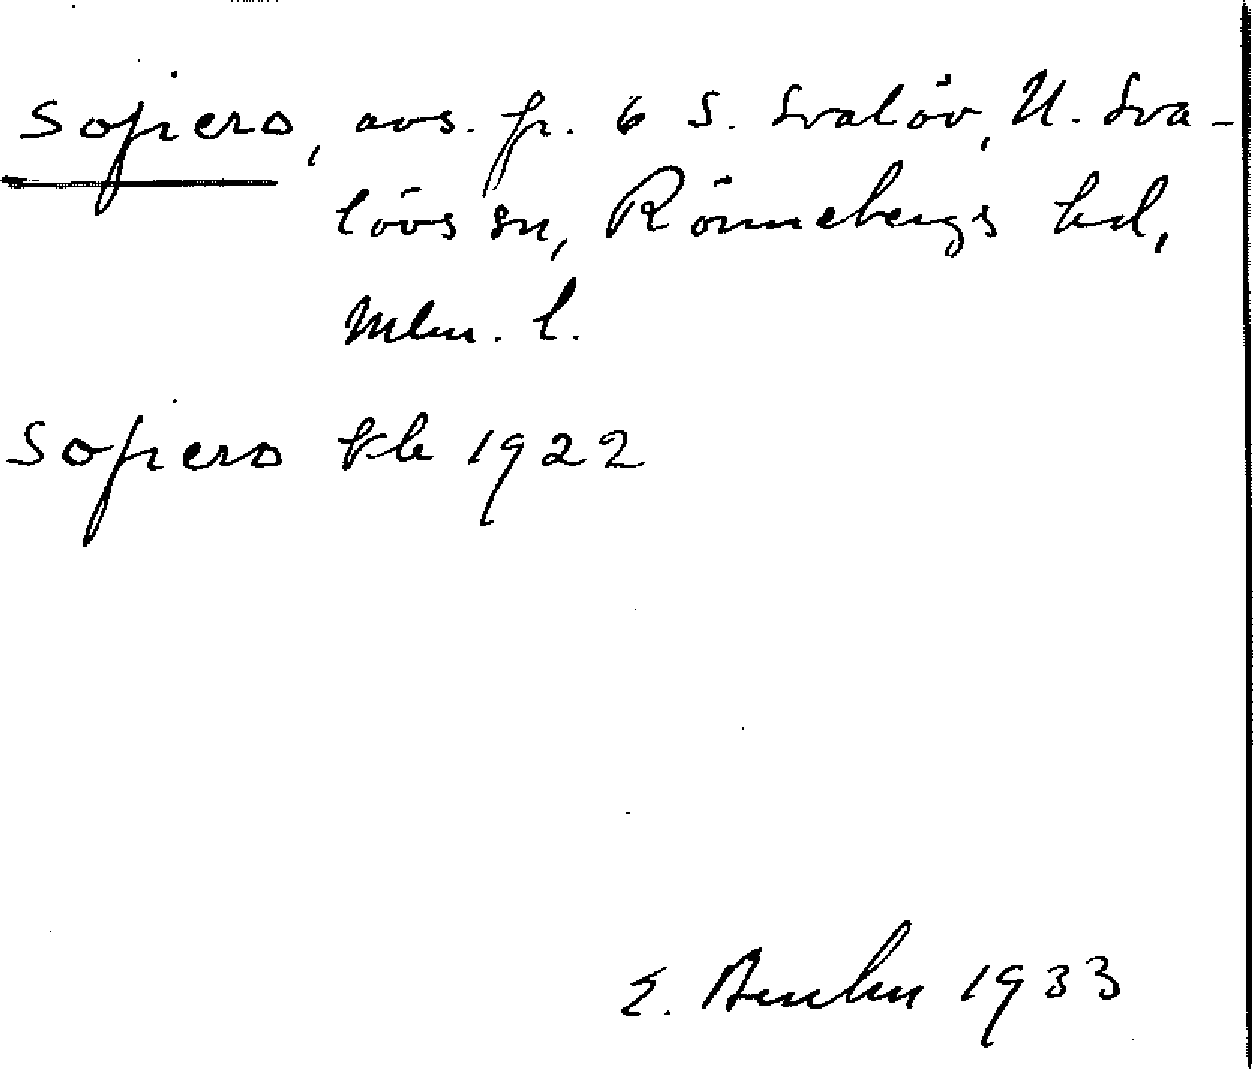 Sofiero, avs. fr. 6 S. Svalöv, N. Sva-
lövs sn, Rönnebergs hd,
Mlm. l.
Sofiero tk 1922
E. 1933